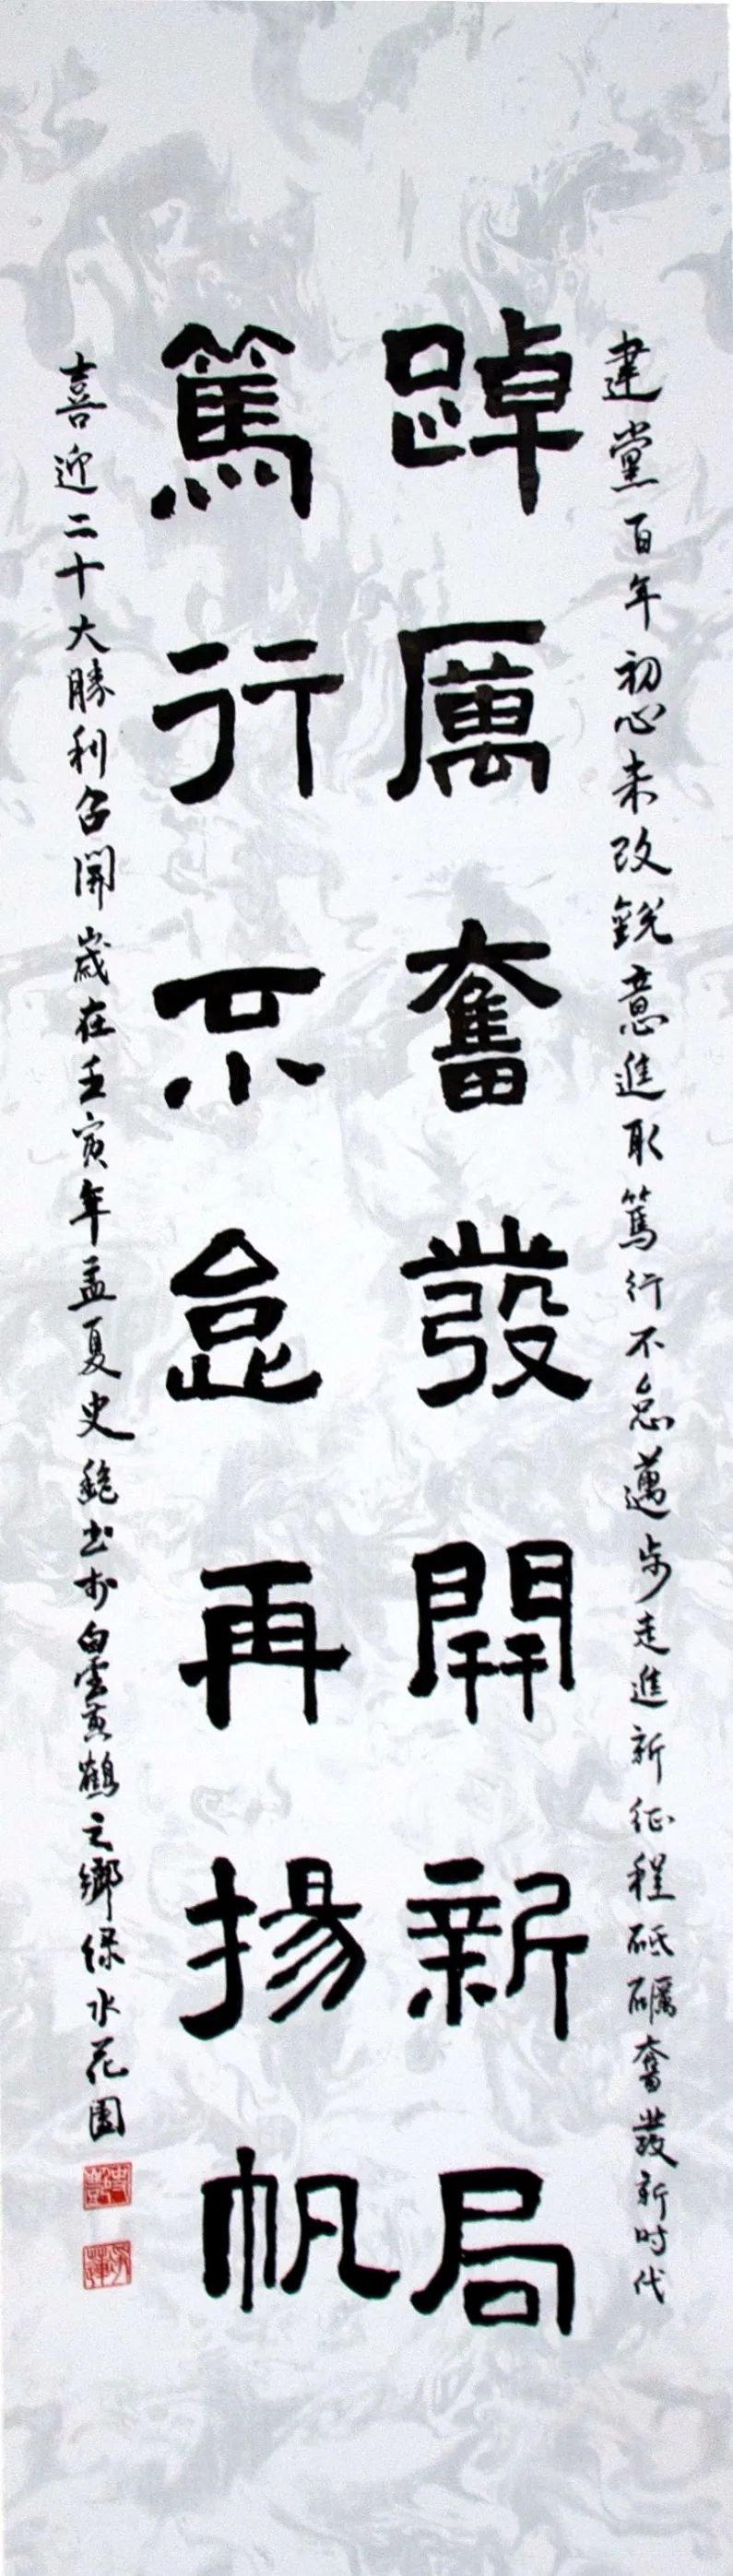 建黨百年初心未改銳意進取篤行不怠邁步走進新征程砥礪奮發新时代
踔厲奮發開新局
篤行不怠再揚帆
喜迎二十大勝利召開歲在壬寅年孟夏史艷书於白雲黄鶴之鄉绿水花園